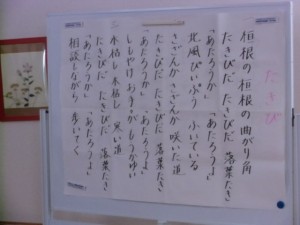 たきび
垣根の垣根の曲がり角
たきびだ たきびだ 落葉たき
「あたろうか」「あたろうよ」
北風ぴいぷう ふいている
さざんか さざんか 咲いた道
たきびだ たきびだ 落葉たき
「あたろうか」「あたろうよ」
しもやけおててがもうかゆい
木枯し木枯し 寒い道
たきびだ たきびだ 落葉たき
「あたろうか」「あたろうよ」
相談しながら 歩いてく